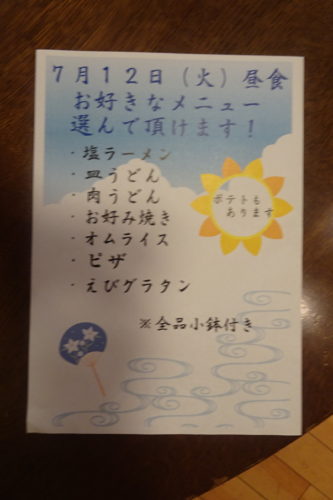 7月12日(火)昼食
お好きなメニュー
選んで頂けます!
・塩ラーメン
・皿うどん
・肉うどん
・お好み焼き
・オムライス
・ピザ
・えびグラタン
ポテトも
あります
※全品小鉢付き